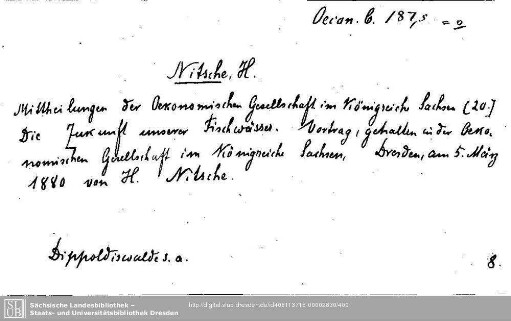 Oecon. C. 187,s = o
Nitsche, H.
Mittheilungen der Oekonomischen Gesellschaft im Königreiche Sachsen (20.)
Die Zukunft unserer Fischwässer. Vortrag, gehalten in der Oeko-
nomischen Gesellschaft im Königreiche Sachsen, Dresden, am 5. März
1880 von H. Nitsche.
Dippoldiswalde s. a.
8.
SLUB
Sächsische Landesbibliothek –
Staats- und Universitätsbibliothek Dresden